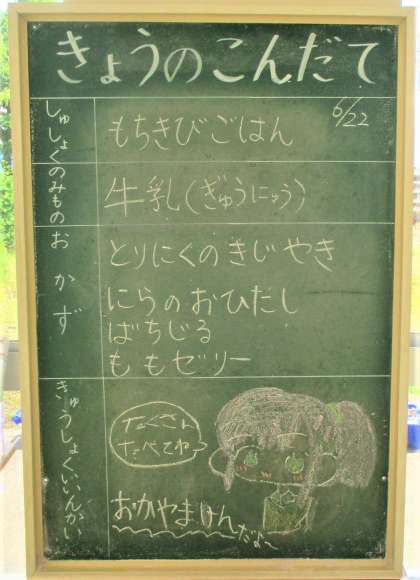 きょうのこんだて
6/22
しゅしょく
もちきびごはん
のみもの
牛乳(ぎゅうにゅう)
おかず
とりにくのきじやき
にらのおひたし
ばちじる
ももゼリー
きゅうしょくいいんかい
たくさん
たべてね
おかやまけんだよ~